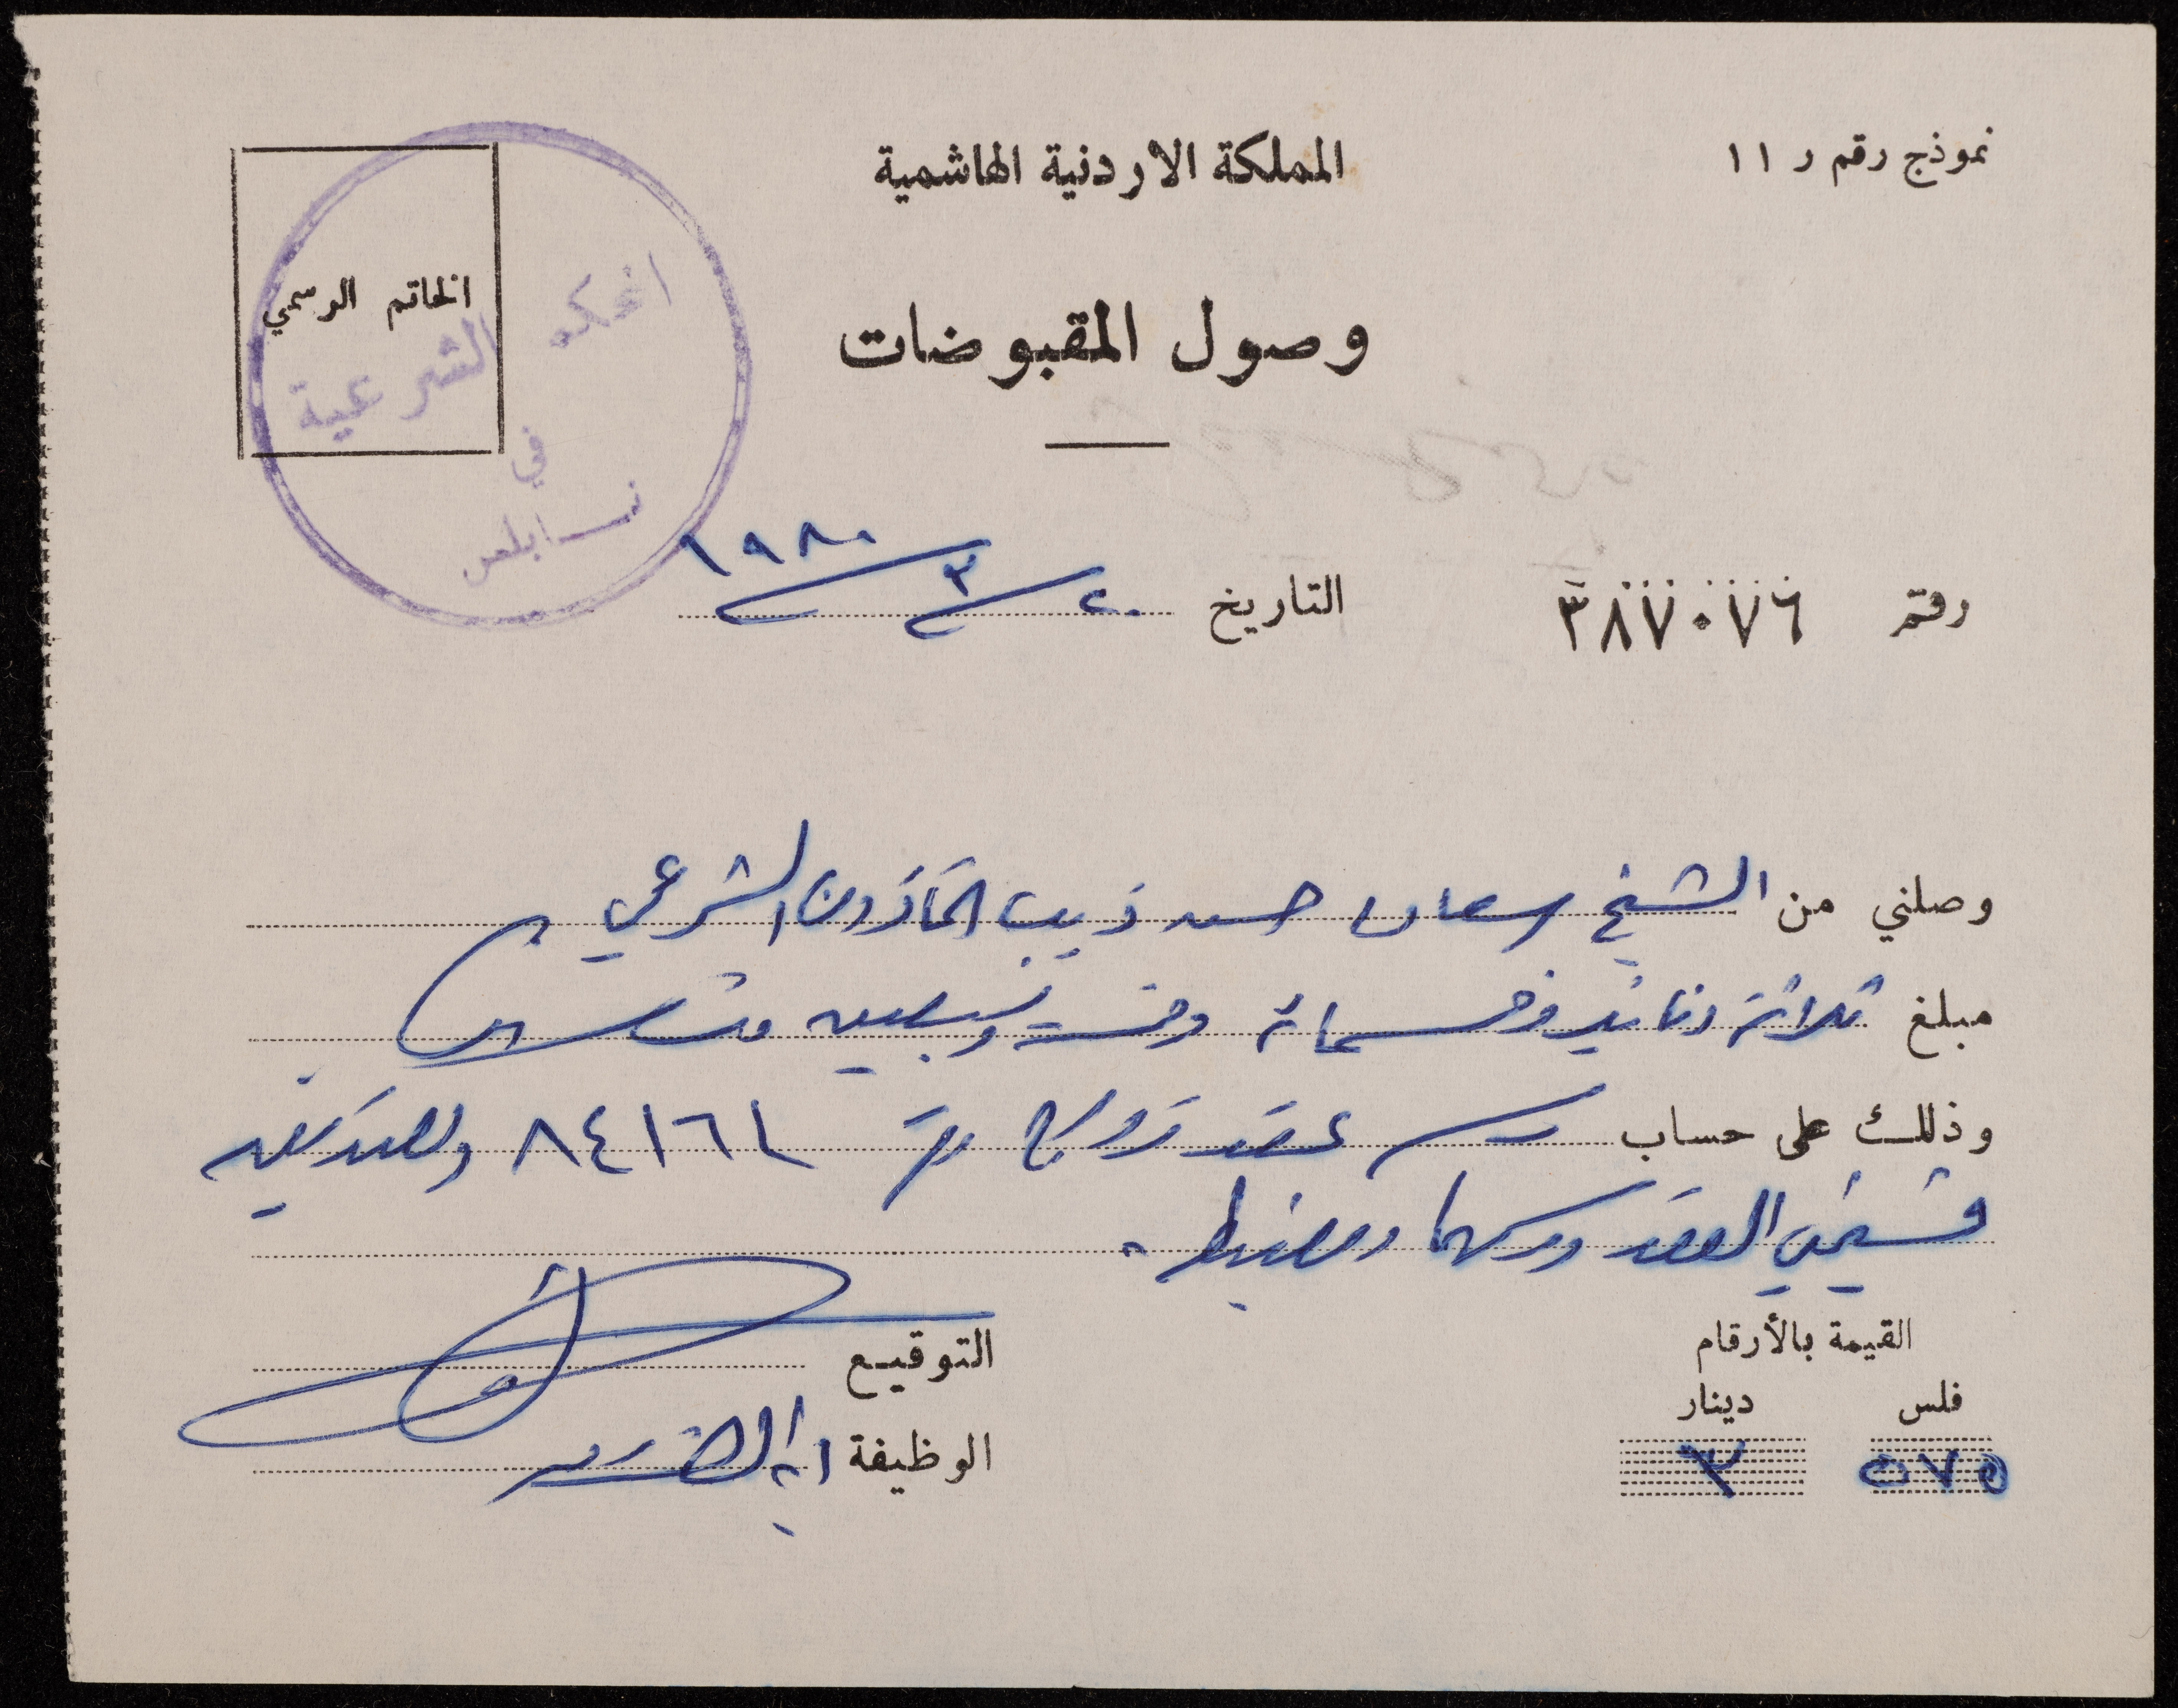 نموذج رقم ر ١١
المملكة الاردنية الهاشمية
وصول المقبوضات
الخاتم الرسمي
المحكمة
الشرعية
في
نابلس
رقم ٣٨٧٠٧٦
التاريخ ٢٠/٣/١٩٨٠
وصلني من الشيخ حسن ذيب المأذون الشرعي
مبلغ ثلاثة دنانير وخمسماية وخمسة وسبعين فلس
وذلك على حساب رسم عقد زواج رقم ٨٤١٦١ وتصديق
نسختي العقد
القيمة بالأرقام
فلس دينار
٥٧٥ ٣
التوقيع
الوظيفة